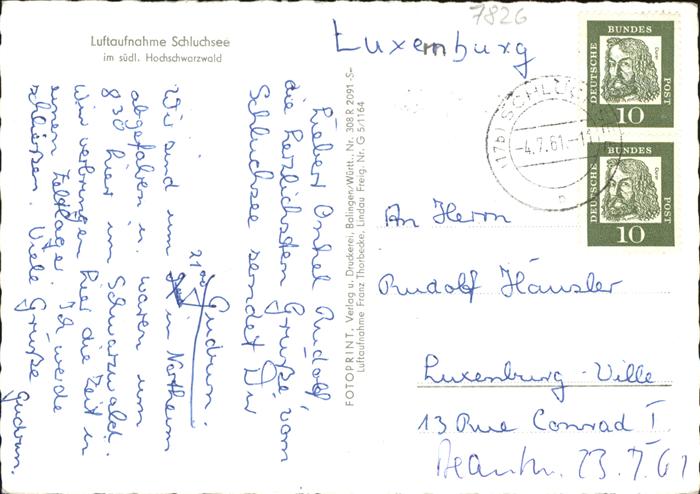 7826
Luftaufnahme Schluchsee
im südl. Hochschwarzwald
Luxemburg
DEUTSCHE BUNDES POST
Dürer
10
DEUTSCHE BUNDES POST
Dürer
10
(17b) SCHLUCHSEE
-4.7.61.-11
a
Lieber Onkel Rudolf,
die herzlichsten Grüße vom
Schluchsee sendet Dir
Gudrun.
Wir sind um 21⁰⁰ in Northeim
abgefahren u. waren um
8³⁰ hier im Schwarzwald.
Wir verbringen hier die Zeit in
einem Zeltlager. Ich werde
schließen. Viele Grüße
Gudrun.
FOTOPRINT, Verlag u. Druckerei, Balingen/Württ., Nr. 308 R 2091 -S-
Luftaufnahme Franz Thorbecke, Lindau Freig. Nr. G 5/1164
An Herrn
Rudolf Häusler
Luxemburg-Ville
13 Rue Conrad I
Beantw. 23.7.61